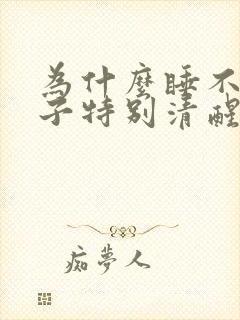 為什麼睡不
子特别清醒
痴夢人